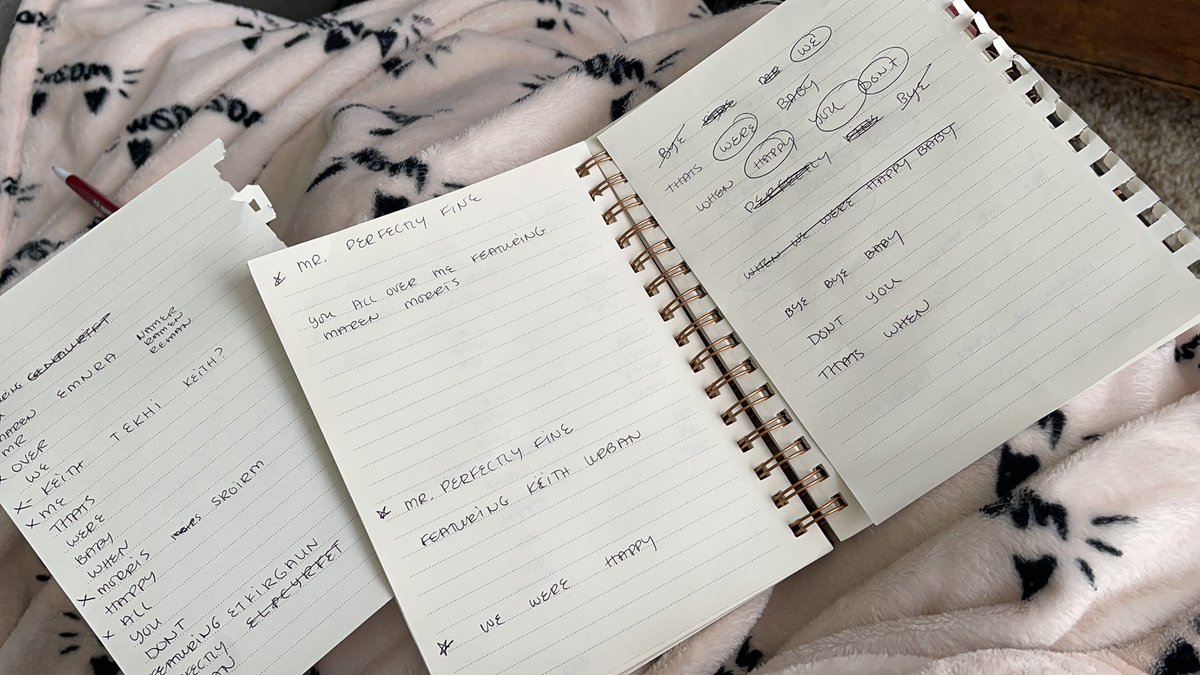 EMNRA NAMER
RAMEN
REMAN
MAREN
MR
X OVER
WE
X- KEITH TEKHI KEITH?
X ME
THATS
WERE
BABY
WHEN
X MORRIS SROIRM
HAPPY
X ALL
YOU
DONT
FEATURING ETKIRGAUN
ELPCYRFET
MR. PERFECTLY FINE
YOU ALL OVER ME FEATURING
MAREN MORRIS
MR. PERFECTLY FINE
FEATURING KEITH URBAN
WE WERE HAPPY
BYE WE
THATS WERE BABY
WHEN HAPPY YOU DON'T
PERFECTLY BYE
WHEN WE WERE HAPPY BABY
BYE BYE BABY
DONT YOU
THATS WHEN